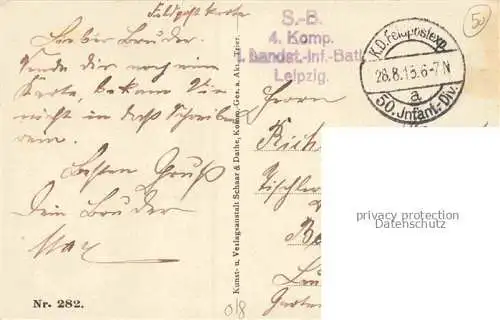 Feldpostkarte
Lieber Bruder.
Sende dir noch eine
Karte, bekam Sie
nicht in das Schreiben
rein.
Besten Gruß
Dein Bruder
Max
Nr. 282.
Kunst- u. Verlagsanstalt Schaar & Dathe, Komm.-Ges. a. Akt., Trier.
S.-B.
4. Komp.
1. Landst.-Inf.-Batl.
Leipzig.
K.D. Feldpostexp.
28.8.15.6-7N
a
50. Infant.-Div.
50
Herrn
Tischler
privacy protection
Datenschutz